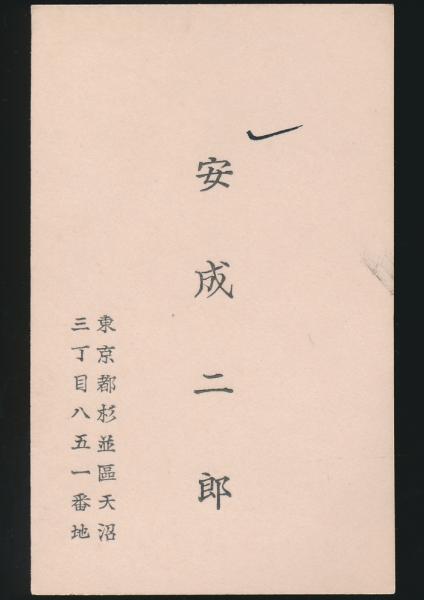 安成二郎
東京都杉並區天沼
三丁目八五一番地